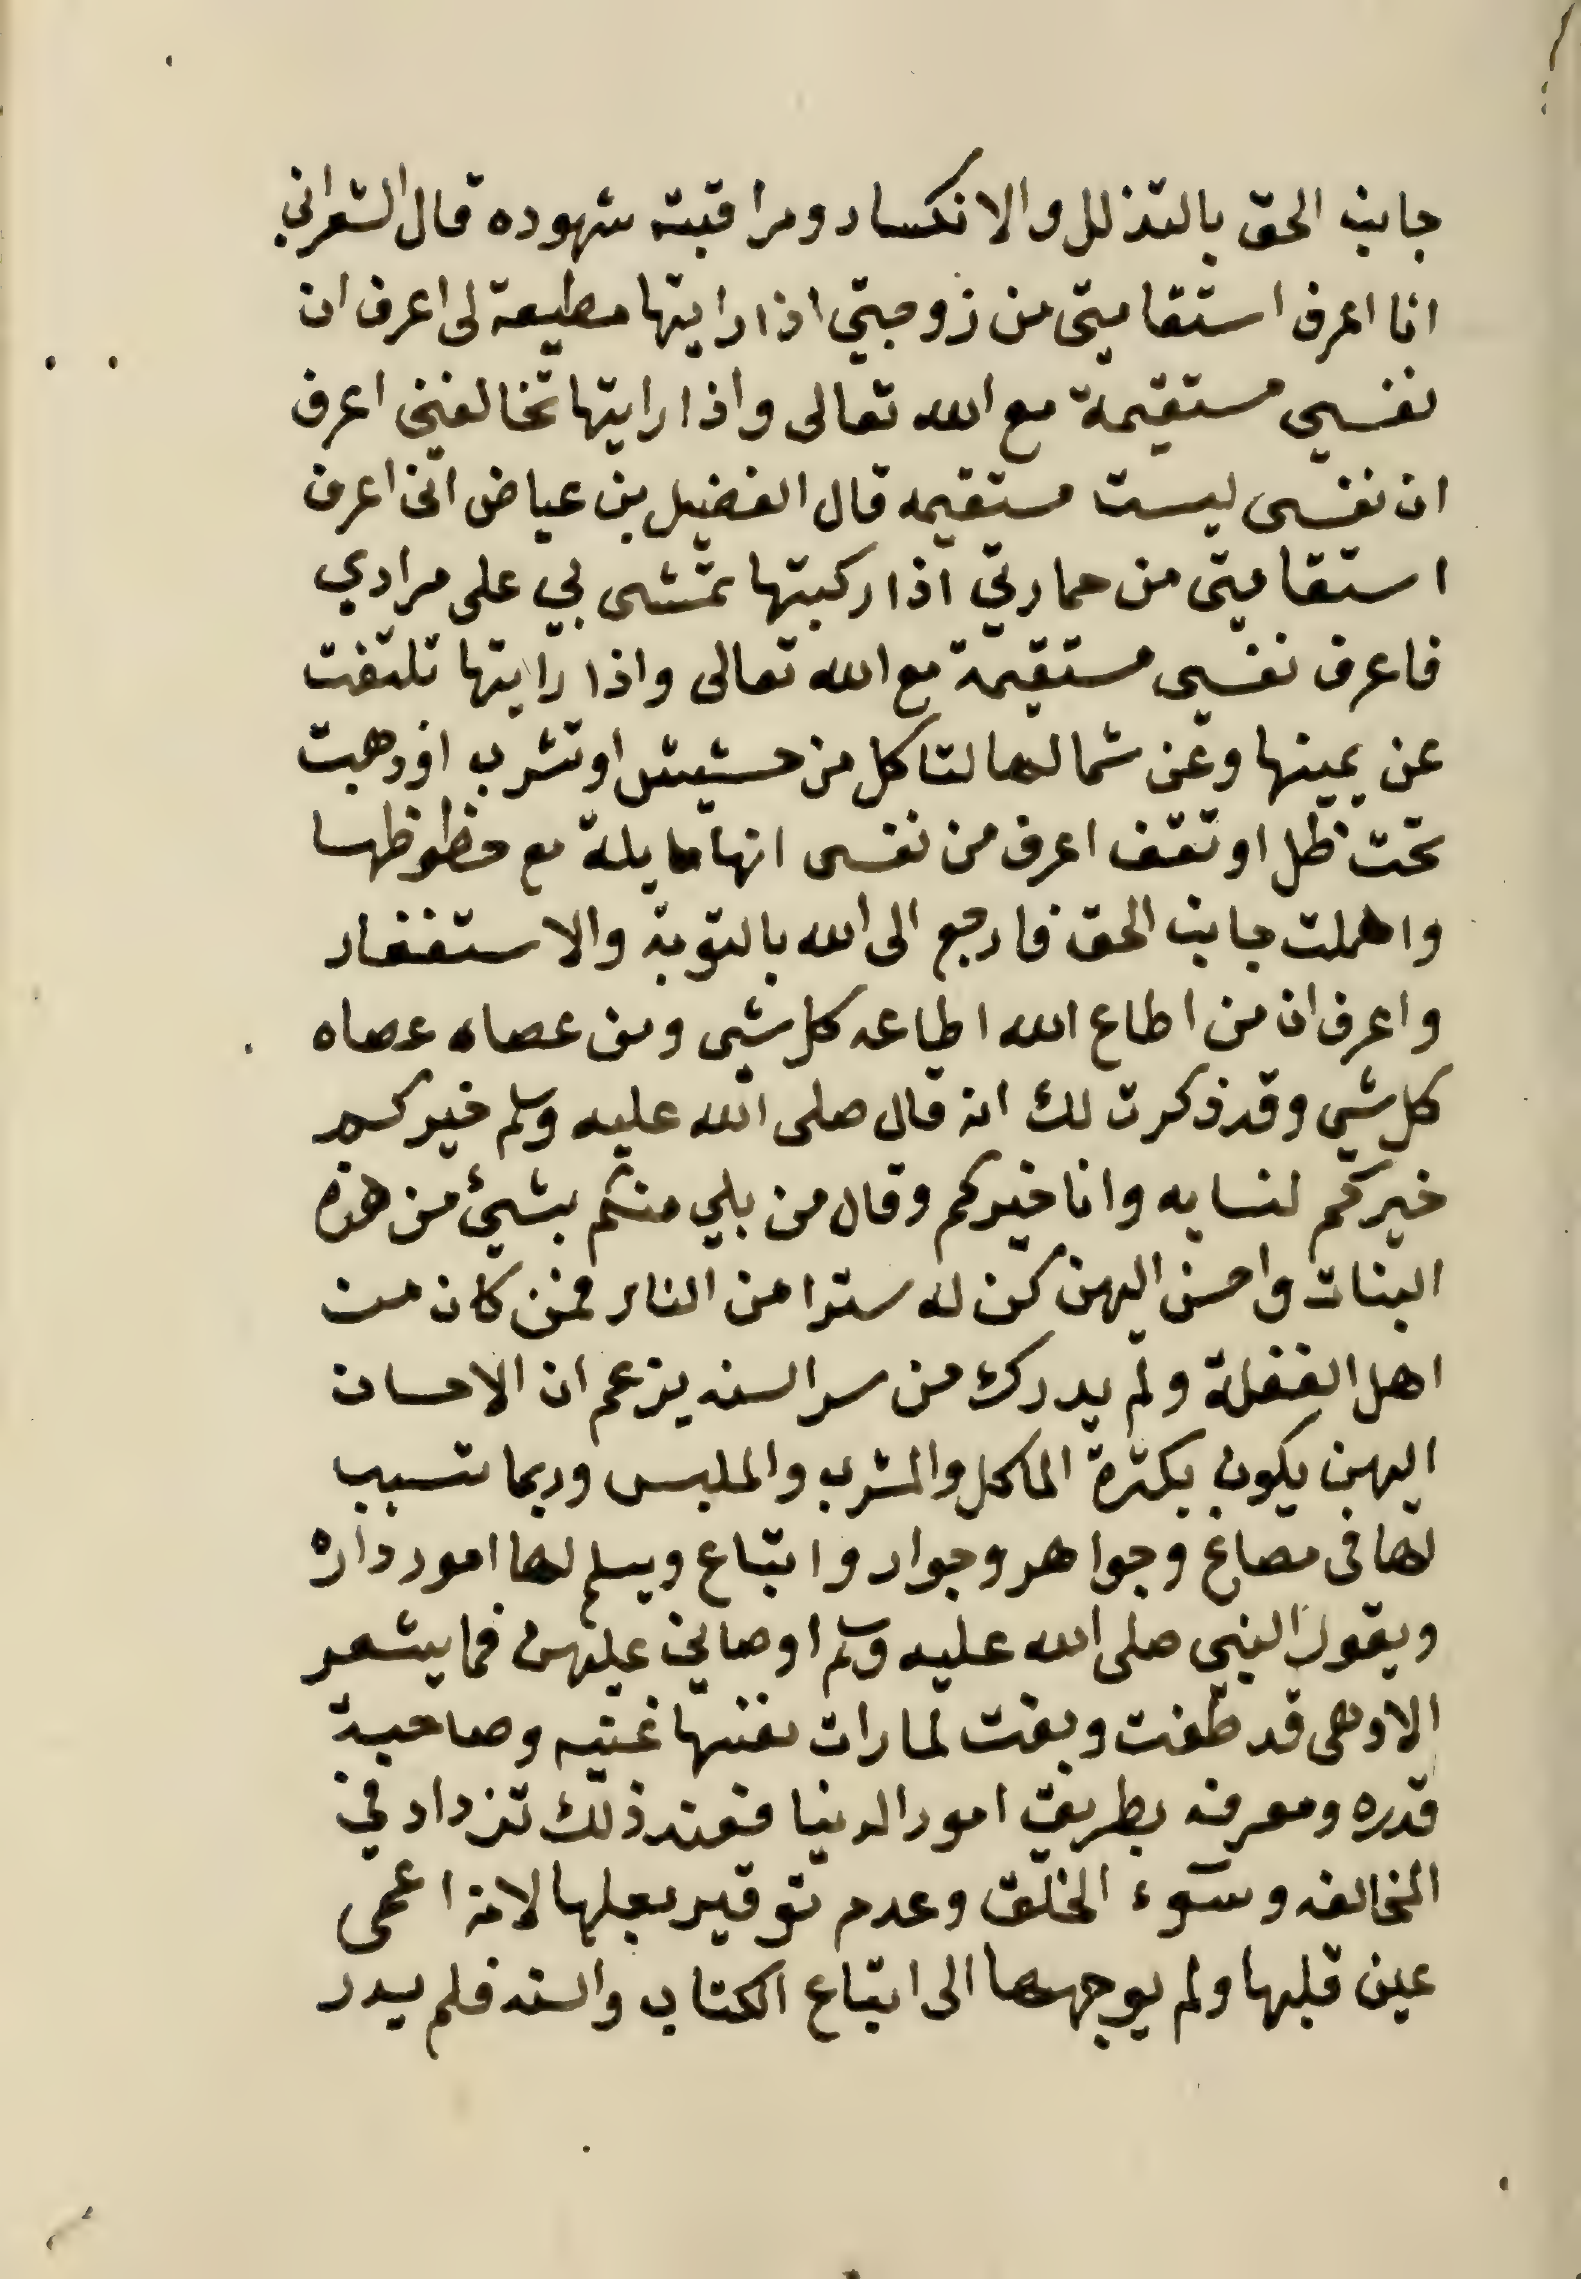 جانب الحق بالتذلل والانكسار ومراقبته شهوده قال الشعراني
انا اعرف استقامتي من زوجتي اذا رايتها مطيعة لي اعرف ان
نفسي مستقيمة مع الله تعالى واذا رايتها تخالفني اعرف
ان نفسي ليست مستقيمه قال الفضيل بن عياض انى اعرف
استقامتي من حمارتي اذا ركبتها تمشى بي على مرادي
فاعرف نفسي مستقيمة مع الله تعالى واذا رايتها تلتفت
عن يمينها وعن شمالها لتاكل من حشيش او تشرب او ذهبت
تحت ظل او تقف اعرف من نفسى انها مايلة مع حظوظها
واهملت جانب الحق فارجع الى الله بالتوبة والاستغفار
واعرف ان من اطاع الله اطاعه كل شي ومن عصاه عصاه
كل شي وقد ذكرت لك انه قال صلى الله عليه وسلم خيركم
خيركم لنسايه وانا خيركم وقال من بلي منكم بشيئ من هذه
البنات واحسن اليهن كن له سترا من النار فمن كان من
اهل الغفلة ولم يدرك من سر السنه يزعم ان الاحسان
اليهن يكون بكثرة الماكل والمشرب والملبس وربما تسبب
لها في مصاغ وجواهر وجوار واتباع ويسلم لها امور داره
ويقول النبي صلى الله عليه وسلم اوصاني عليهن فما يشعر
الا وهي قد طغت وبغت لما رات نفسها غنيه وصاحبة
قدره ومعرفه بطريق امور الدنيا فعند ذلك تزداد في
المخالفه وسوء الخلق وعدم توقير بعلها لانه اعمى
عين قلبها ولم يوجهها الى اتباع الكتاب والسنه فلم يدر